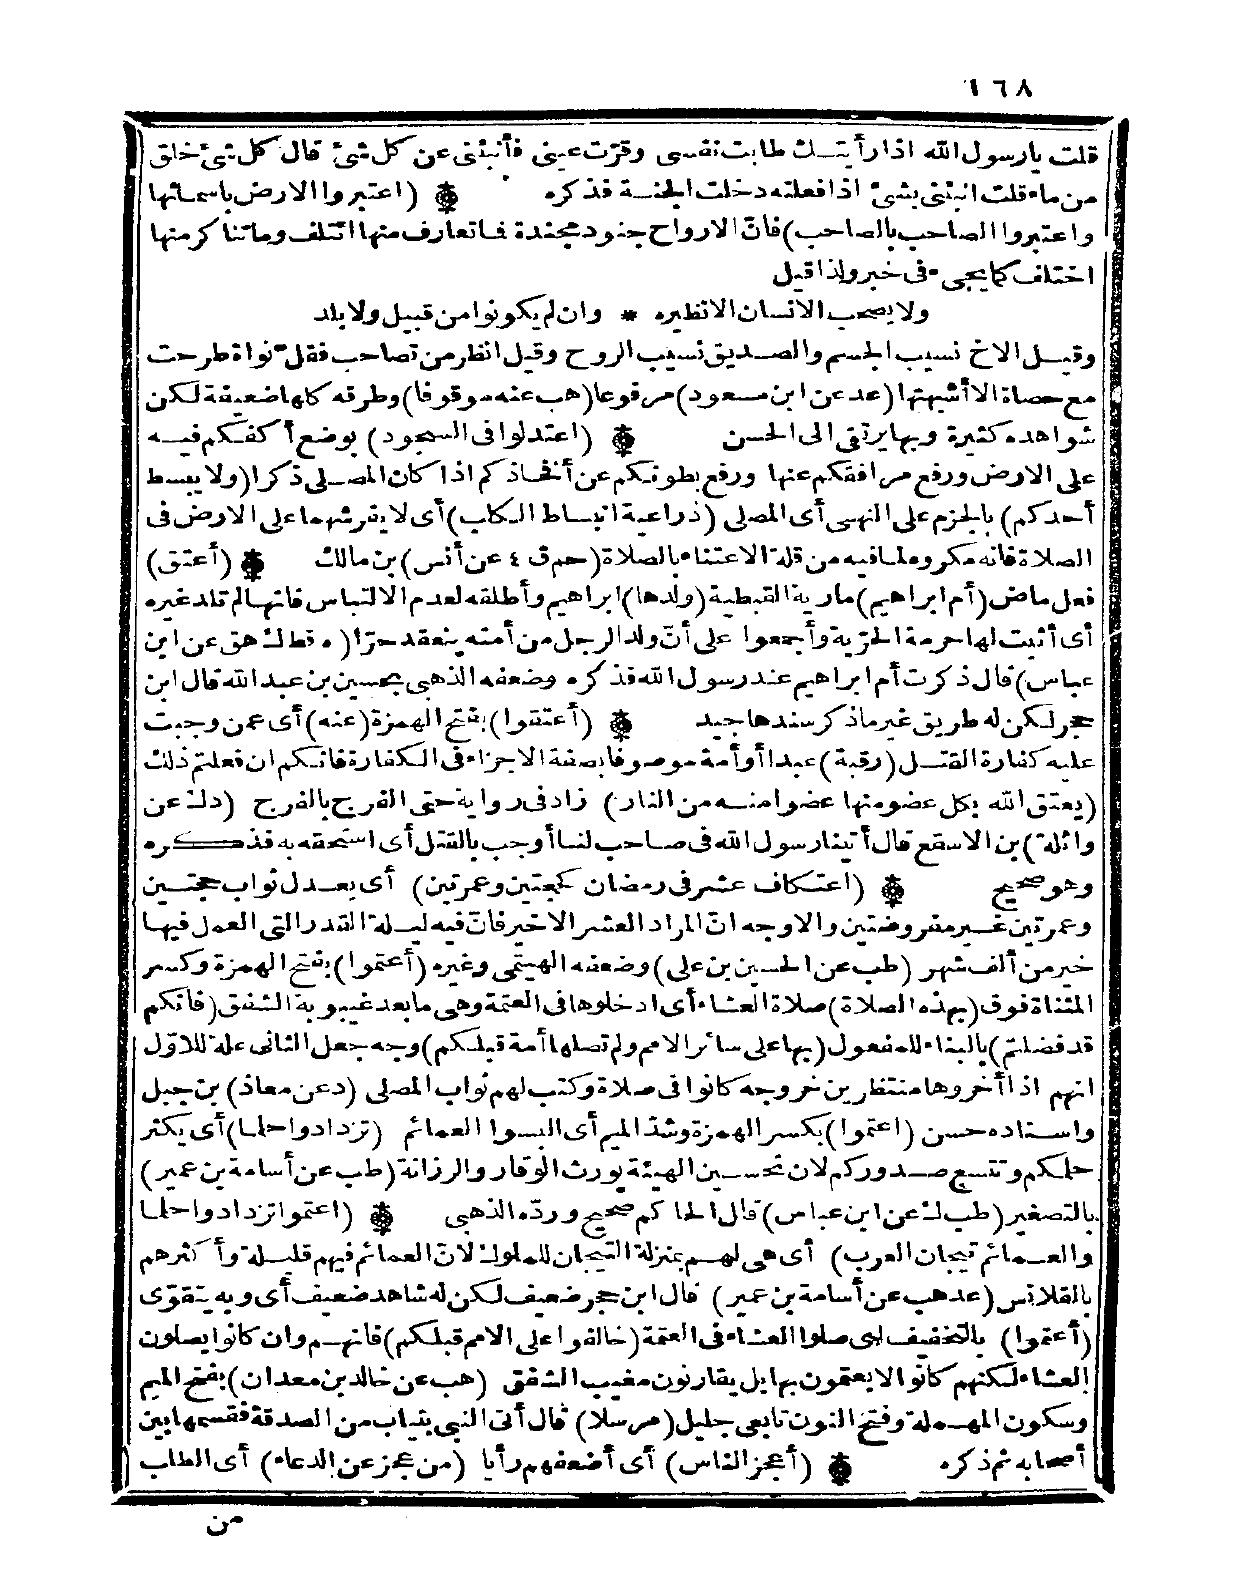 ١٦٨
قلت يارسول الله اذا رأيتك طابت نفسى وقرّت عينى فأنبئنى عن كل شئ قال كل شئ خلق
من ماء قلت انبئنى بشئ اذا فعلته دخلت الجنة فذكره (اعتبروا الارض باسمائها
واعتبروا الصاحب بالصاحب) فانّ الارواح جنود مجندة فاتعارف منها ائتلف وماتناكر منها
اختلف كما يجىء فى خبر ولذا قيل
ولا يصحب الانسان الا نظيره * وان لم يكونوا من قبيل ولا بلد
وقيل الاخ نسيب الجسم والصديق نسيب الروح وقيل انظر من تصاحب فقلّ نواة طرحت
مع حصاة الا أشبهتها (عد عن ابن مسعود) مرفوعا (هب عنه موقوفا) وطرقه كلها ضعيفة لكن
شواهده كثيرة وبها يرتقى الى الحسن (اعتدلوا فى السجود) بوضع أكفكم فيه
على الارض ورفع مرافقكم عنها ورفع بطونكم عن أفخاذكم اذا كان المصلى ذكرا (ولا يبسط
أحدكم) بالجزم على النهى أى المصلى (ذراعيه انبساط الكلب) أى لا يفرشهما على الارض فى
الصلاة فانه مكروه لما فيه من قلة الاعتناء بالصلاة (حم ق ٤ عن أنس) بن مالك (أعتق)
فعل ماض (أم ابراهيم) مارية القبطية (ولدها) ابراهيم وأطلقه لعدم الالتباس فانها لم تلد غيره
أى أثبت لها حرمة الحرّية وأجمعوا على أنّ ولد الرجل من أمته ينعقد حرّا (ه قط ك هق عن ابن
عباس) قال ذكرت أم ابراهيم عند رسول الله فذكره وضعفه الذهبى بحسين بن عبد الله قال ابن
حجر لكن له طريق غير ماذكر سندها جيد (أعتقوا) بفتح الهمزة (عنه) أى عمن وجبت
عليه كفارة القتل (رقبة) عبدا أو أمة موصوفا بصفة الاجزاء فى الكفارة فانكم ان فعلتم ذلك
(يعتق الله بكل عضو منها عضوا منه من النار) زاد فى رواية حتى الفرج بالفرج (د ك عن
واثلة) بن الاسقع قال أتينا رسول الله فى صاحب لنا أوجب بالقتل أى استحقه به فذكره
وهو صحيح (اعتكاف عشر فى رمضان كحجتين وعمرتين) أى يعدل ثواب حجتين
وعمرتين غير مفروضتين والاوجه انّ المراد العشر الاخير فانّ فيه ليلة القدر التى العمل فيها
خير من ألف شهر (طب عن الحسين بن على) وضعفه الهيتمى وغيره (أعتموا) بفتح الهمزة وكسر
المثناة فوق (بهذه الصلاة) صلاة العشاء أى ادخلوها فى العتمة وهى ما بعد غيبوبة الشفق (فانكم
قد فضلتم) بالبناء للمفعول (بها على سائر الامم ولم تصلها أمة قبلكم) وجه جعل الثانى علة للاوّل
انهم اذا أخروها منتظرين خروجه كانوا فى صلاة وكتب لهم ثواب المصلى (د عن معاذ) بن جبل
واسناده حسن (اعتموا) بكسر الهمزة وشدّ الميم أى البسوا العمائم (تزدادوا حلما) أى يكثر
حلمكم وتتسع صدوركم لان تحسين الهيئة يورث الوقار والرزانة (طب عن أسامة بن عمير)
بالتصغير (طب ك عن ابن عباس) قال الحاكم صحيح وردّه الذهبى (اعتموا تزدادوا حلما
والعمائم تيجان العرب) أى هى لهم بمنزلة التيجان للملوك لانّ العمائم فيهم قليلة وأكثرهم
بالقلانس (عد هب عن أسامة بن عمير) قال ابن حجر ضعيف لكن له شاهد ضعيف أى وبه يتقوّى
(أعتموا) بالتخفيف أى صلوا العشاء فى العتمة (خالفوا على الامم قبلكم) فانهم وان كانوا يصلون
العشاء لكنهم كانوا لا يعتمون بها بل يقارنون مغيب الشفق (هب عن خالد بن معدان) بفتح الميم
وسكون المهملة وفتح النون تابعى جليل (مرسلا) قال أتى النبى بثياب من الصدقة فقسمها بين
أصحابه ثم ذكره (أعجز الناس) أى أضعفهم رأيا (من عجز عن الدعاء) أى الطلب
من